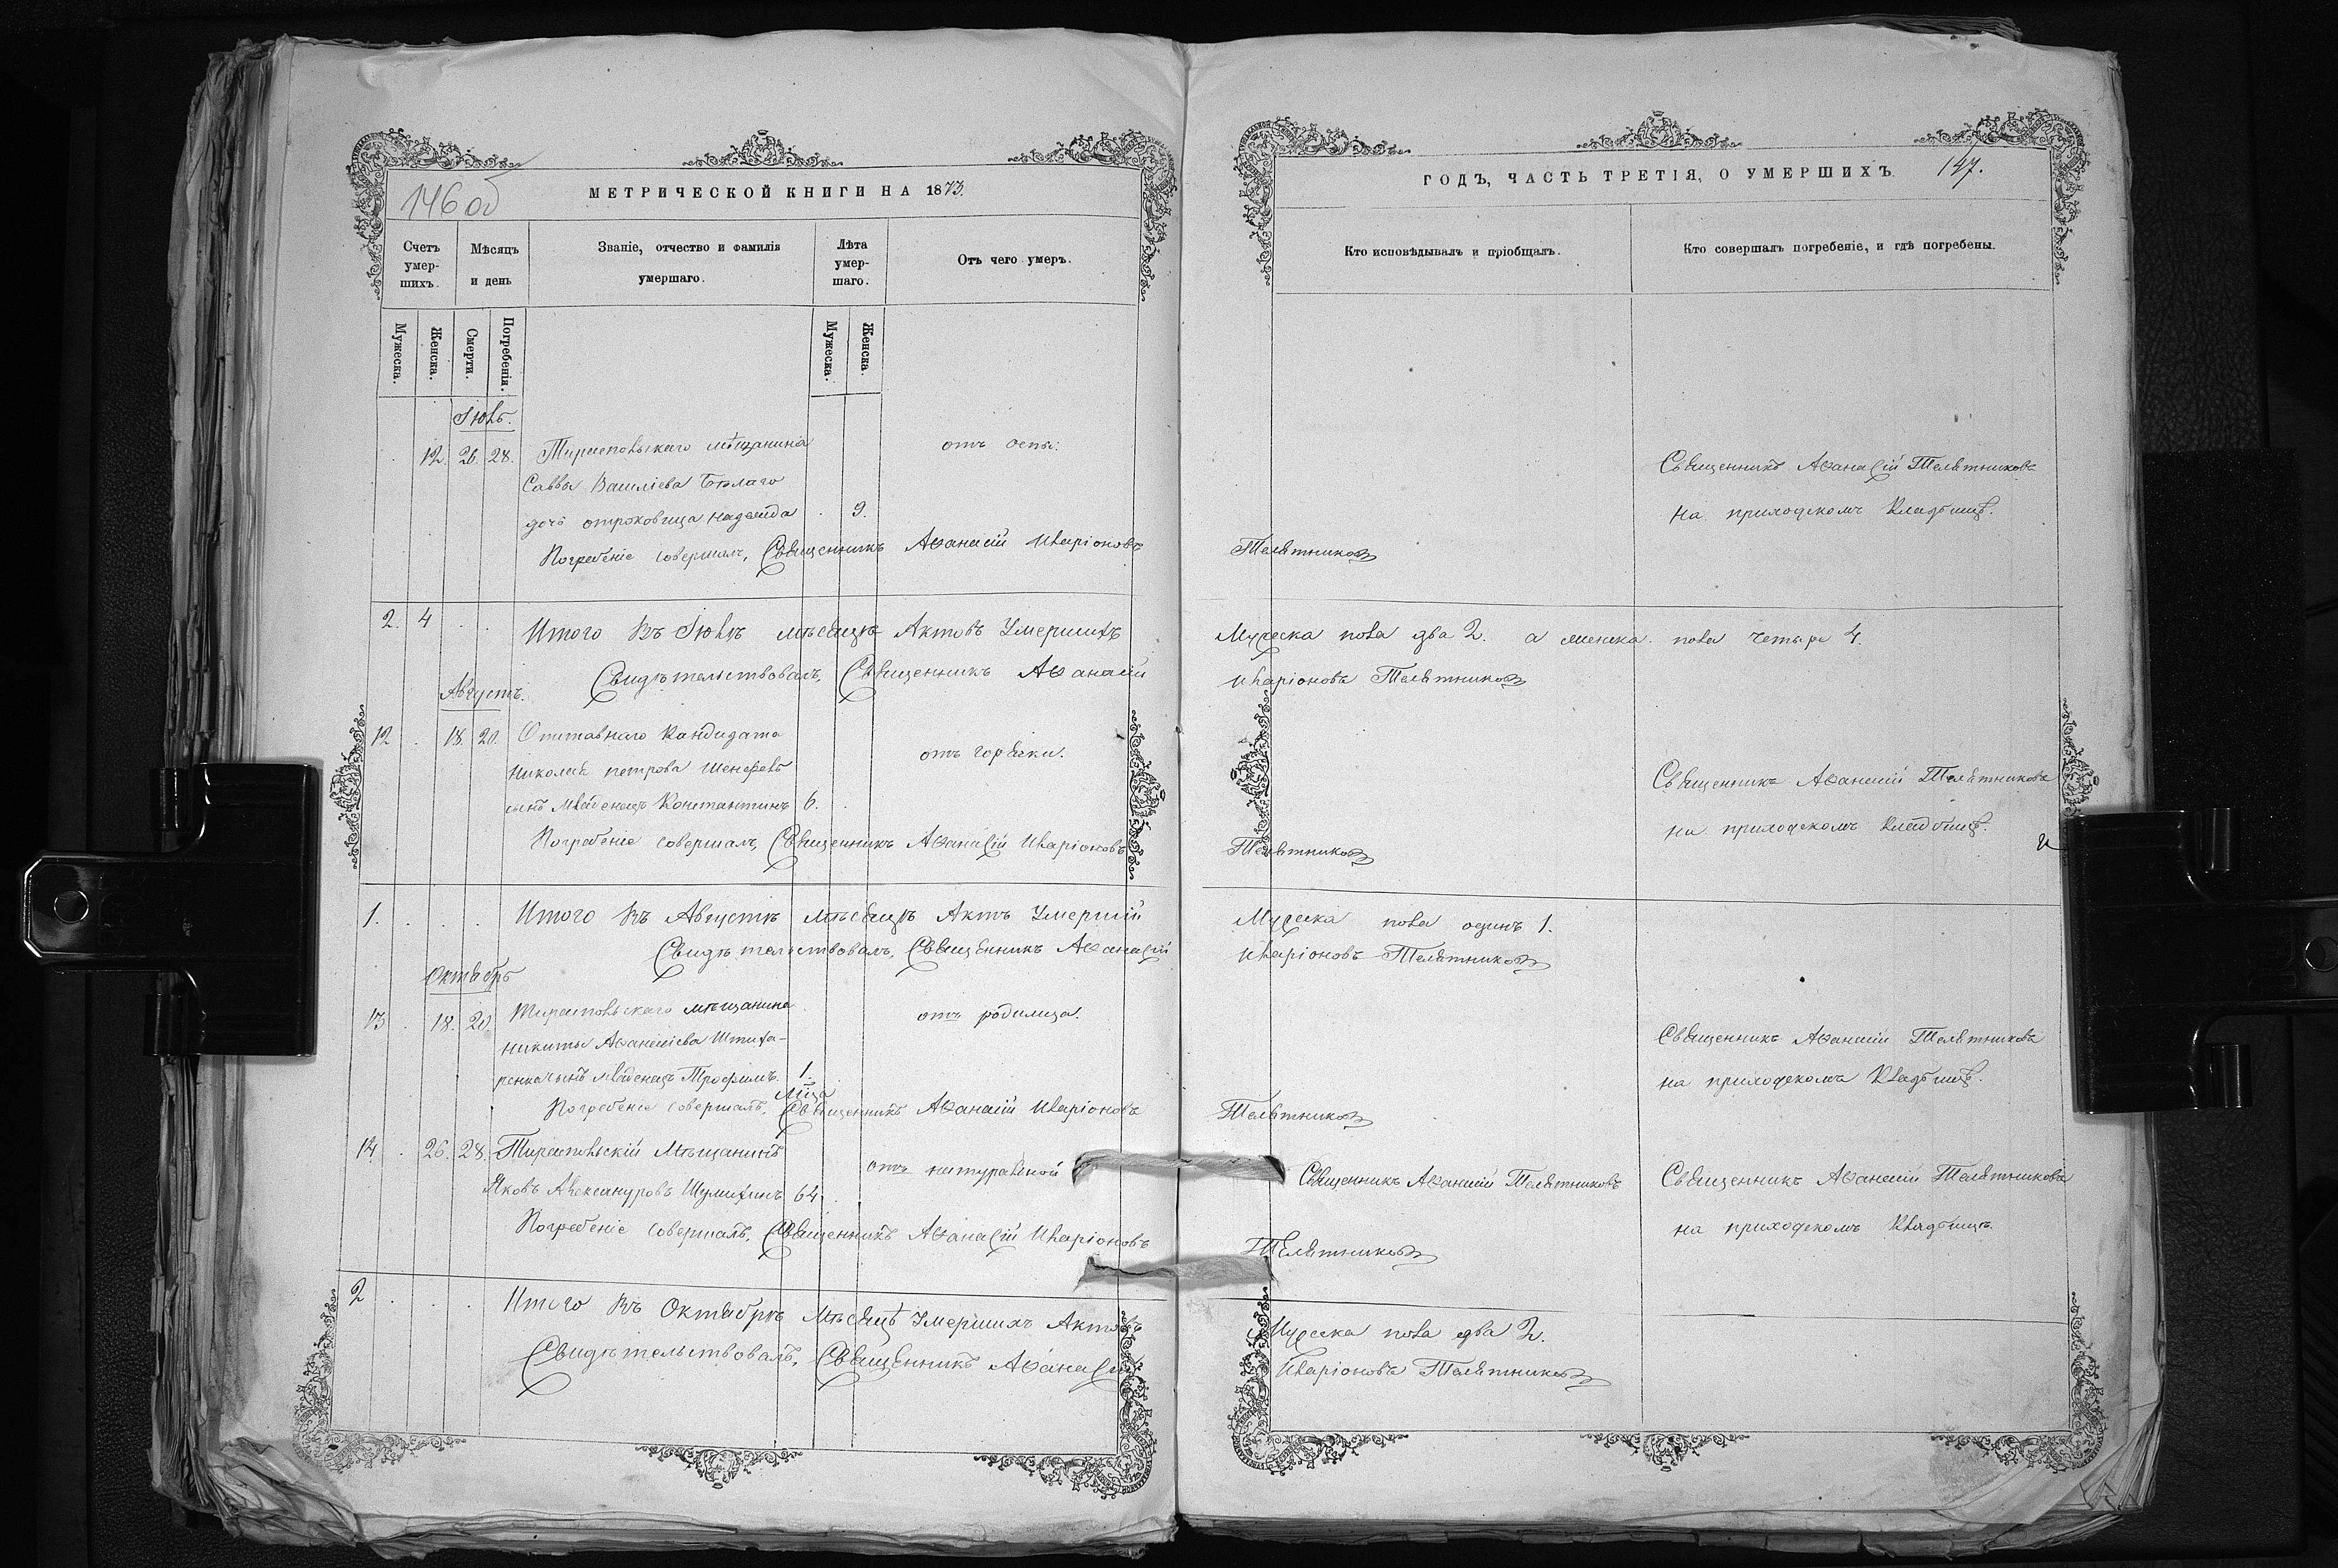 146 об
МЕТРИЧЕСКОЙ КНИГИ НА 1873.
Счетъ умер-шихъ.
Мѣсяцъ и день
Званіе, отчество и фамилія умершаго.
Лѣта умер-шаго.
Отъ чего умеръ.
Мужеска.
Женска.
Смерти.
Погребенія.
Мужеска.
Женска.
Іюль.
12. 26. 28. Тираспольскаго мѣщанина
отъ оспы.
Саввы Василіева Бѣлаго
дочь отроковица Надежда 9.
Погребеніе совершалъ, Священникъ Аѳанасій Иларіоновъ
2. 4 Итого Въ Іюлѣ мѣсяцѣ Актовъ Умершихъ
Свидѣтельствовалъ, Священникъ Аѳанасій
Августъ.
12 18. 20. Отставнаго Кандидата
отъ горячки.
Николая Петрова
сынъ младенецъ Константинъ 6.
Погребеніе совершалъ, Священникъ Аѳанасій Иларіоновъ
1. Итого Въ Августѣ мѣсяцѣ Актъ Умершій
Свидѣтельствовалъ, Священникъ Аѳанасій
Октябрь
13 18. 20. Тираспольскаго мѣщанина
отъ родимца.
Никиты Аѳанасіева Штиха-
ренка сынъ младенецъ Трофимъ. 1.
Мца
Погребеніе совершалъ, Священникъ Аѳанасій Иларіоновъ
14. 26. 28. Тираспольскій Мѣщанинъ
отъ натуральной
Яковъ Александровъ Шумихинъ 64
Погребеніе совершалъ, Священникъ Аѳанасій Иларіоновъ
2 Итого Въ Октябрѣ Мѣсяцѣ Умершихъ Актовъ
Свидѣтельствовалъ, Священникъ Аѳанасій
ГОДЪ, ЧАСТЬ ТРЕТІЯ, О УМЕРШИХЪ. 147.
Кто исповѣдывалъ и пріобщалъ.
Кто совершалъ погребеніе, и гдѣ погребены.
Священникъ Аѳанасій Телятниковъ
на приходскомъ кладбищѣ.
Телятниковъ
Мужеска пола два 2. а женска пола четыре 4.
Иларіоновъ Телятниковъ
Священникъ Аѳанасій Телятниковъ
на приходскомъ кладбищѣ.
Телятниковъ
Мужеска пола одинъ 1.
Иларіоновъ Телятниковъ
Священникъ Аѳанасій Телятниковъ
на приходскомъ кладбищѣ.
Телятниковъ
Священникъ Аѳанасій Телятниковъ
Священникъ Аѳанасій Телятниковъ
на приходскомъ кладбищѣ.
Телятниковъ
Мужеска пола два 2.
Иларіоновъ Телятниковъ